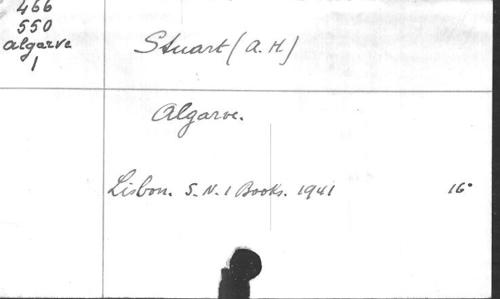 466
550
algarve
1
Stuart (A.H)
Algarve.
Lisbon. S.N.I Books. 1941 16°